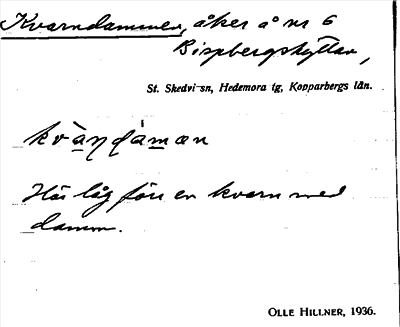 Kvarndammen, åker å nr 6
Bispbergshyttan,
St. Skedvi sn, Hedemora tg, Kopparbergs län.
kvàṇdáman
Här låg förr en kvarn med
damm.
OLLE HILLNER, 1936.